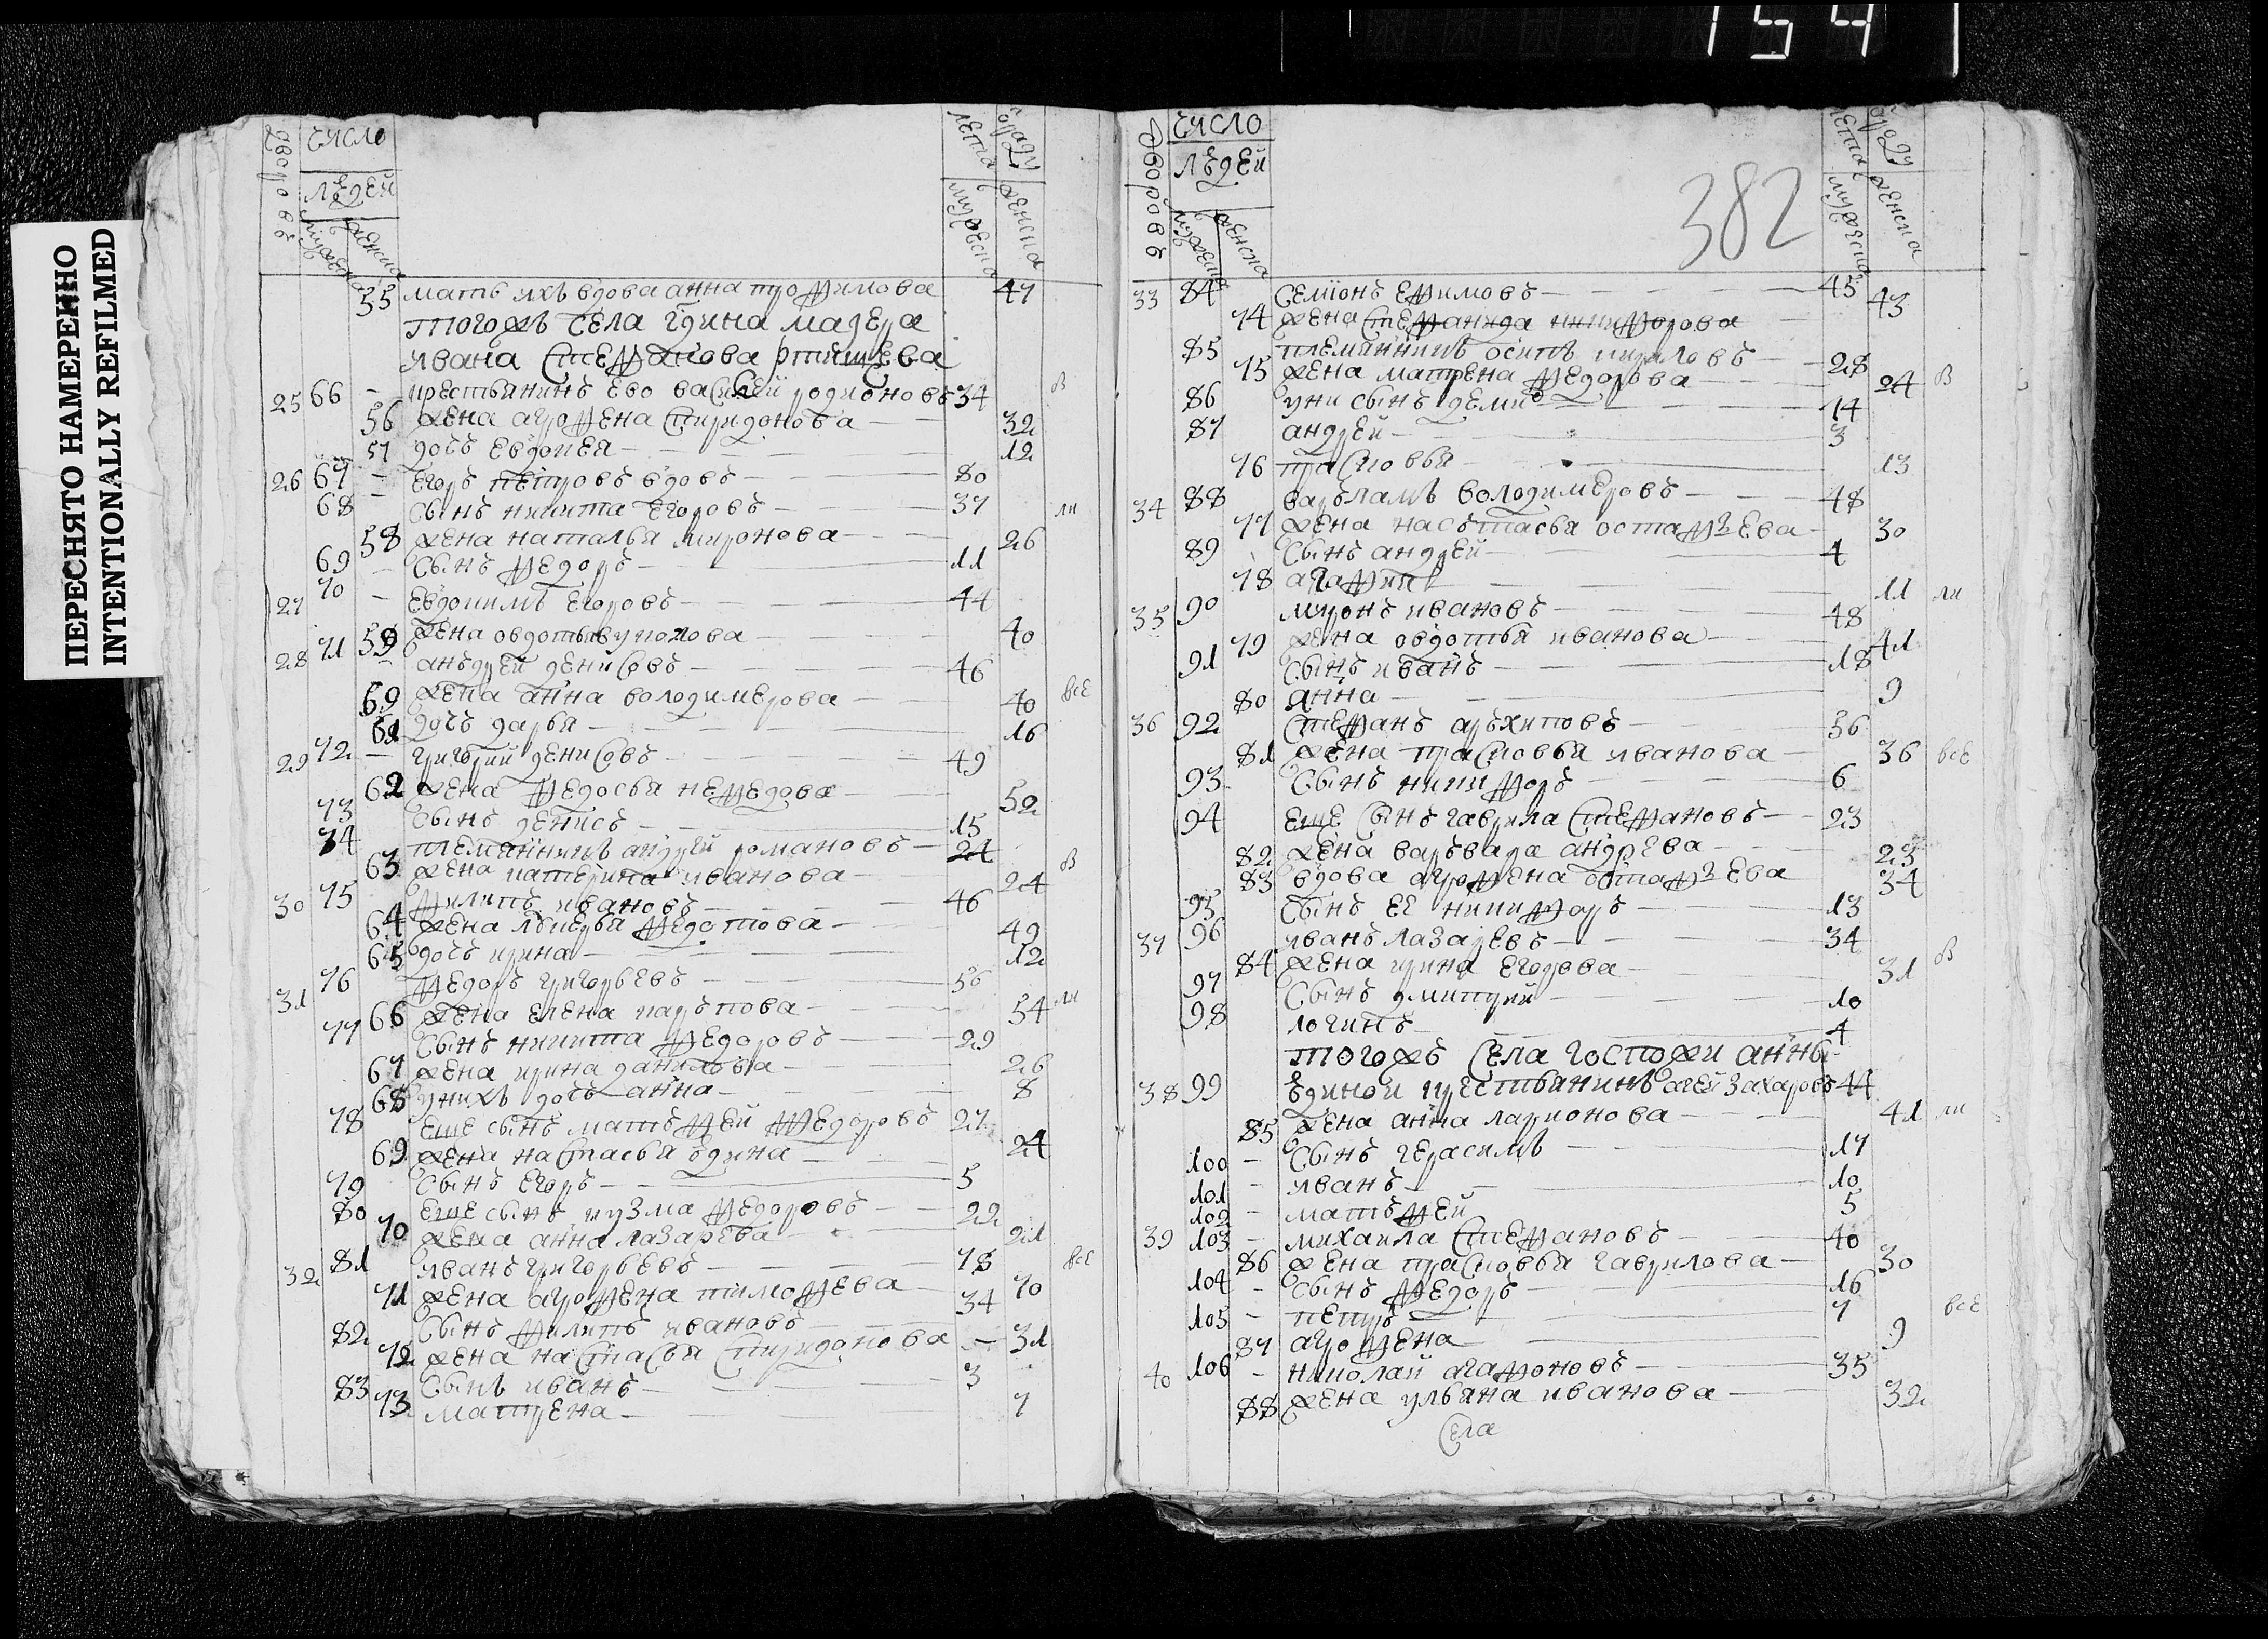 154
ПЕРЕСНЯТО НАМЕРЕННО
INTENTIONALLY REFILMED
дворовъ число людей мужеска женска лета мужеска женска
55 мать ихъ вдова анна трофимова 47
тогожъ села гдина маэора
ивана стефанова ртищева
25 66 – крестьянинъ ево василей родионовъ 34
56 жена агрофена спиридонова 32
57 дочь евдокея 12
26 67 – егоръ петровъ вдовъ 80
68 – сынъ никита егоровъ 37
58 жена наталья миронова 26
69 – сынъ федоръ 11
27 70 – евдокимъ егоровъ 44
59 жена овдотья вуколова 40
28 71 – анъдрей денисовъ 46
69 жена анна володимерова 40 все
61 дочь дарья 16
29 72 – григорий денисовъ 49
62 жена федосья нефедова 52
73 сынъ денисъ 15
74 племянникъ андрей романовъ 24
63 жена катерина иванова 24
30 75 филипъ ивановъ 46
64 жена лукерья федотова 49
65 дочь ирина 12
31 76 федоръ григорьевъ 56
66 жена елена карьпова 54
77 сынъ никита федоровъ 29
67 жена ирина данилова 26
68 у нихъ дочь анна 8
78 еще сынъ матьфей федоровъ 27
69 жена настасья юдина 24
79 сынъ егоръ 5
80 еще сынъ кузма федоровъ 22
70 жена анна лазарева 21
32 81 иванъ григорьевъ 78 все
71 жена агрофена тимофева 70
82 сынъ филипъ ивановъ 34
72 жена настасья спиридонова – 31
83 сынъ иванъ 3
73 матрена 7
дворовъ число людей мужеска женска лета мужеска женска
382
33 84 семионъ ефимовъ 45
74 жена стефанида никифорова 43
85 племянникъ осипъ кириловъ 28
75 жена матрена федорова 24
86 у ни сынъ деми 14
87 андрей 3
76 прасковья 13
34 88 варьламъ володимеровъ 48
77 жена насьтасья остафьева 30
89 сынъ андрей 4
78 агафия 11
35 90 миронъ ивановъ 48
79 жена овдотья иванова 41
91 сынъ иванъ 18
80 анна 9
36 92 стефанъ арьхиповъ 56
81 жена прасковья иванова 36 все
93 сынъ никифоръ 6
94 еще сынъ гаврила стефановъ 23
82 жена варьвара андрева 23
83 вдова агрофена остафьева 34
95 сынъ ее никифоръ 13
37 96 иванъ лазаревъ 34
84 жена ирина егорова 31
97 сынъ дмитрий 10
98 логинъ 4
тогожъ села госпожи анны
38 99 юдиной крестьянинъ агей захаровъ 44
85 жена анна ларионова 41
100 – сынъ герасимъ 17
101 – иванъ 10
102 – матьфей 5
39 103 – михаила стефановъ 40
86 жена прасковья гаврилова 30
104 – сынъ федоръ 16
105 – петръ 7 все
87 агрофена 9
40 106 – николай агафоновъ 35
88 жена ульяна иванова 32
села